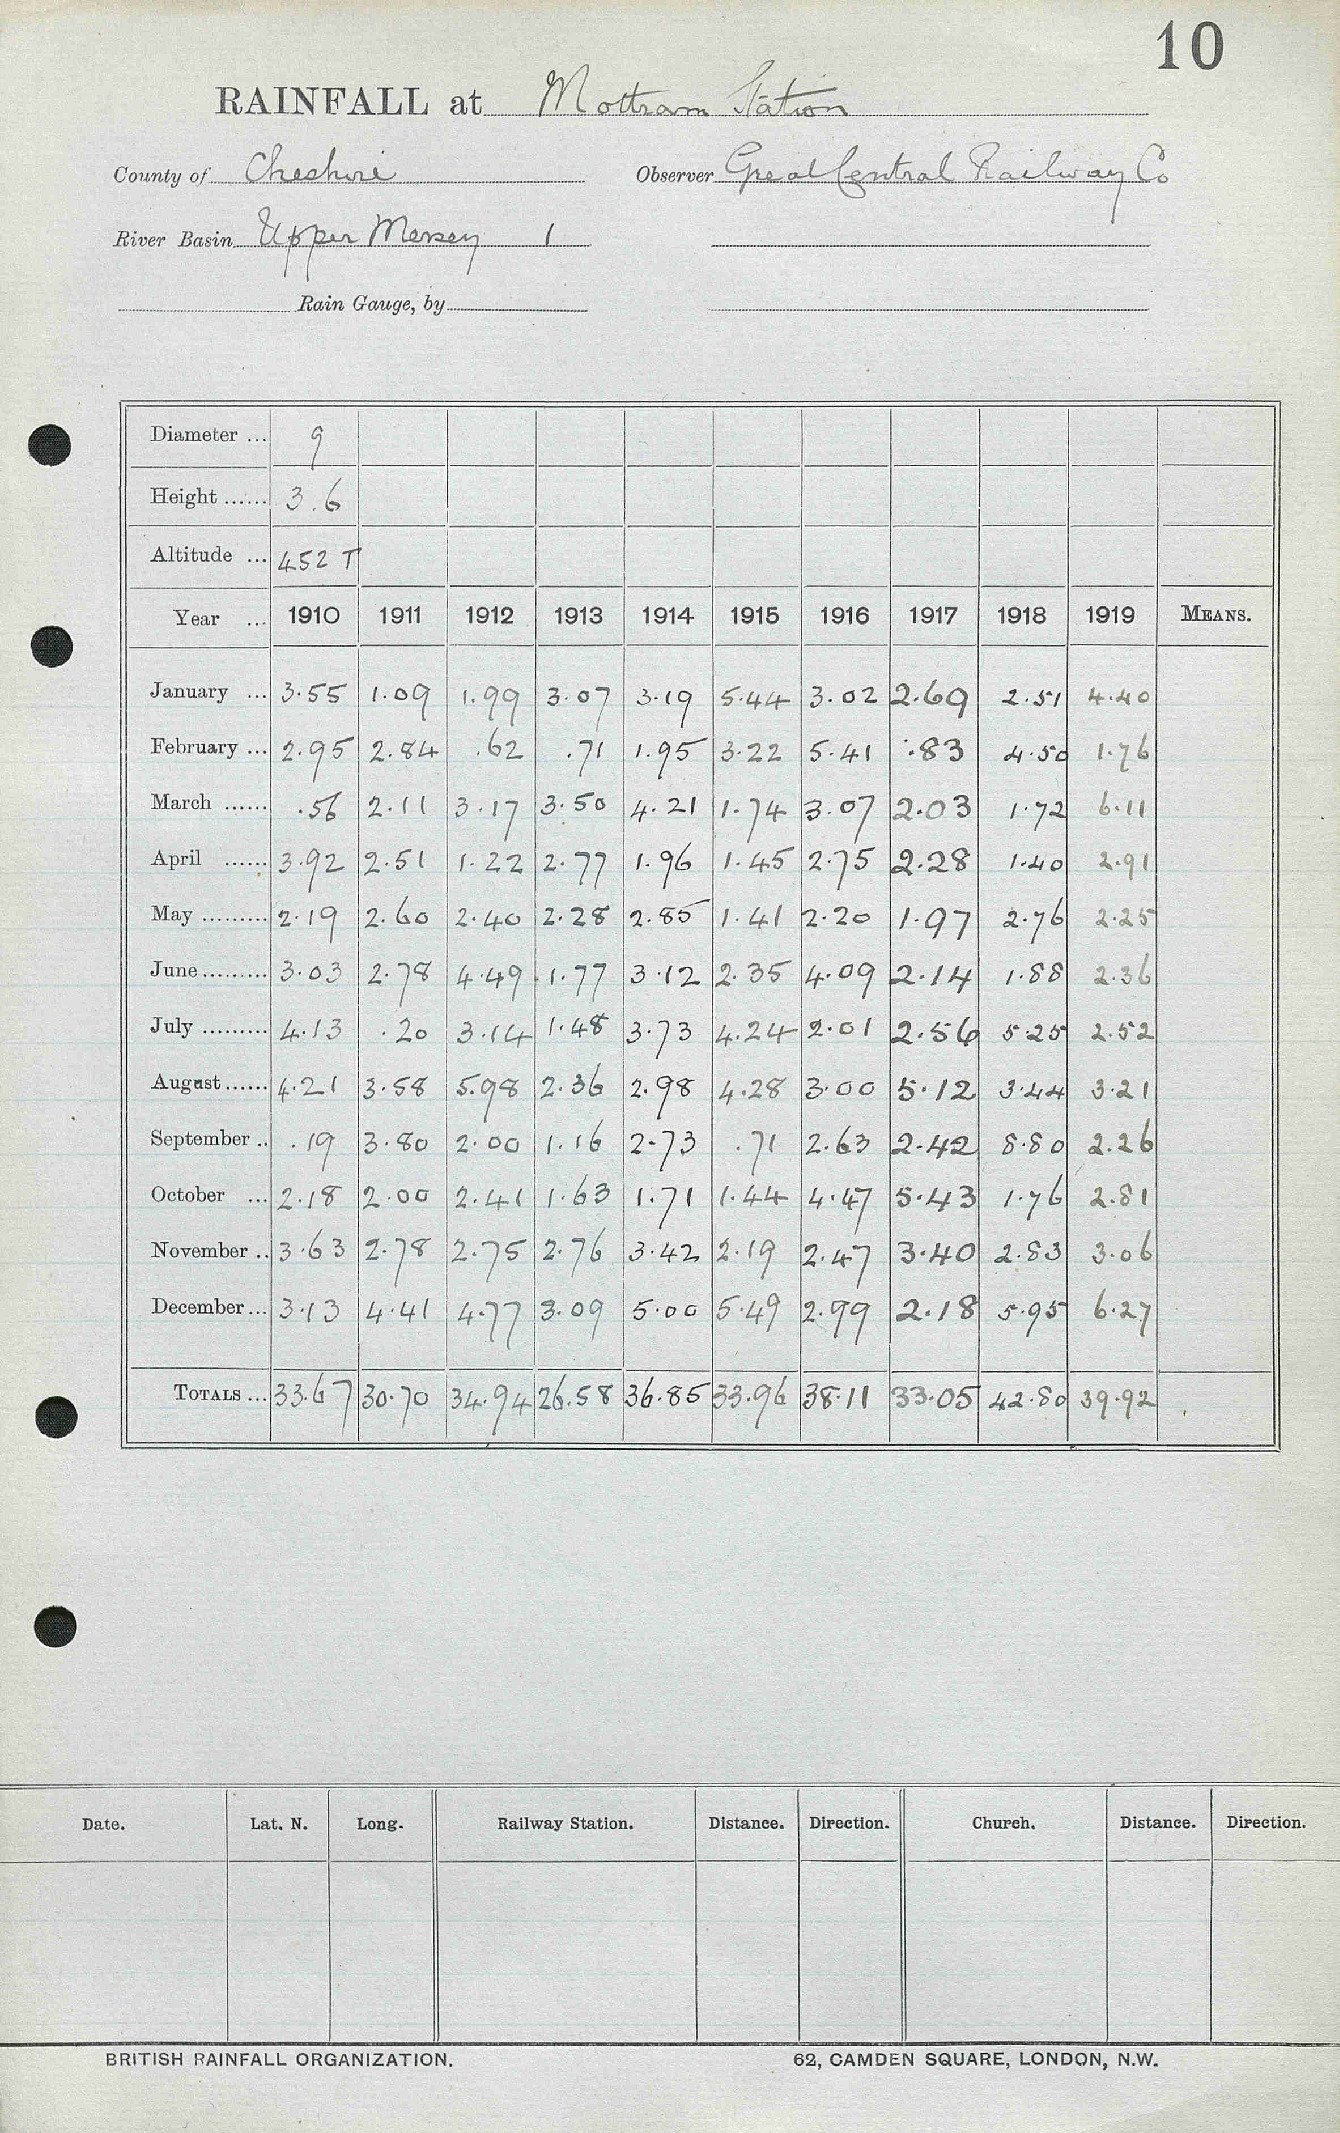 10
RAINFALL at Mottram Station
County of Cheshire Observer Great Central Railway Co
River Basin Upper Mersey 1
Rain Gauge, by
Diameter ... 9
Height ...... 3.6
Altitude ... 452 T
Year ... 1910 1911 1912 1913 1914 1915 1916 1917 1918 1919 MEANS.
January ... 3.55 1.09 1.99 3.07 3.19 5.44 3.02 2.69 2.51 4.40
February ... 2.95 2.84 .62 .71 1.95 3.22 5.41 .83 4.50 1.76
March ...... .56 2.11 3.17 3.50 4.21 1.74 3.07 2.03 1.72 6.11
April ...... 3.92 2.51 1.22 2.77 1.96 1.45 2.75 2.28 1.40 2.91
May ......... 2.19 2.60 2.40 2.28 2.85 1.41 2.20 1.97 2.76 2.25
June ......... 3.03 2.78 4.49 1.77 3.12 2.35 4.09 2.14 1.88 2.36
July ......... 4.13 .20 3.14 1.48 3.73 4.24 2.01 2.56 5.25 2.52
August ...... 4.21 3.58 5.98 2.36 2.98 4.28 3.00 5.12 3.44 3.21
September .. .19 3.80 2.00 1.16 2.73 .71 2.63 2.42 8.80 2.26
October ... 2.18 2.00 2.41 1.63 1.71 1.44 4.47 5.43 1.76 2.81
November .. 3.63 2.78 2.75 2.76 3.42 2.19 2.47 3.40 2.83 3.06
December ... 3.13 4.41 4.77 3.09 5.00 5.49 2.99 2.18 5.95 6.27
TOTALS ... 33.67 30.70 34.94 26.58 36.85 33.96 38.11 33.05 42.80 39.92
Date. Lat. N. Long. Railway Station. Distance. Direction. Church. Distance. Direction.
BRITISH RAINFALL ORGANIZATION. 62, CAMDEN SQUARE, LONDON, N.W.